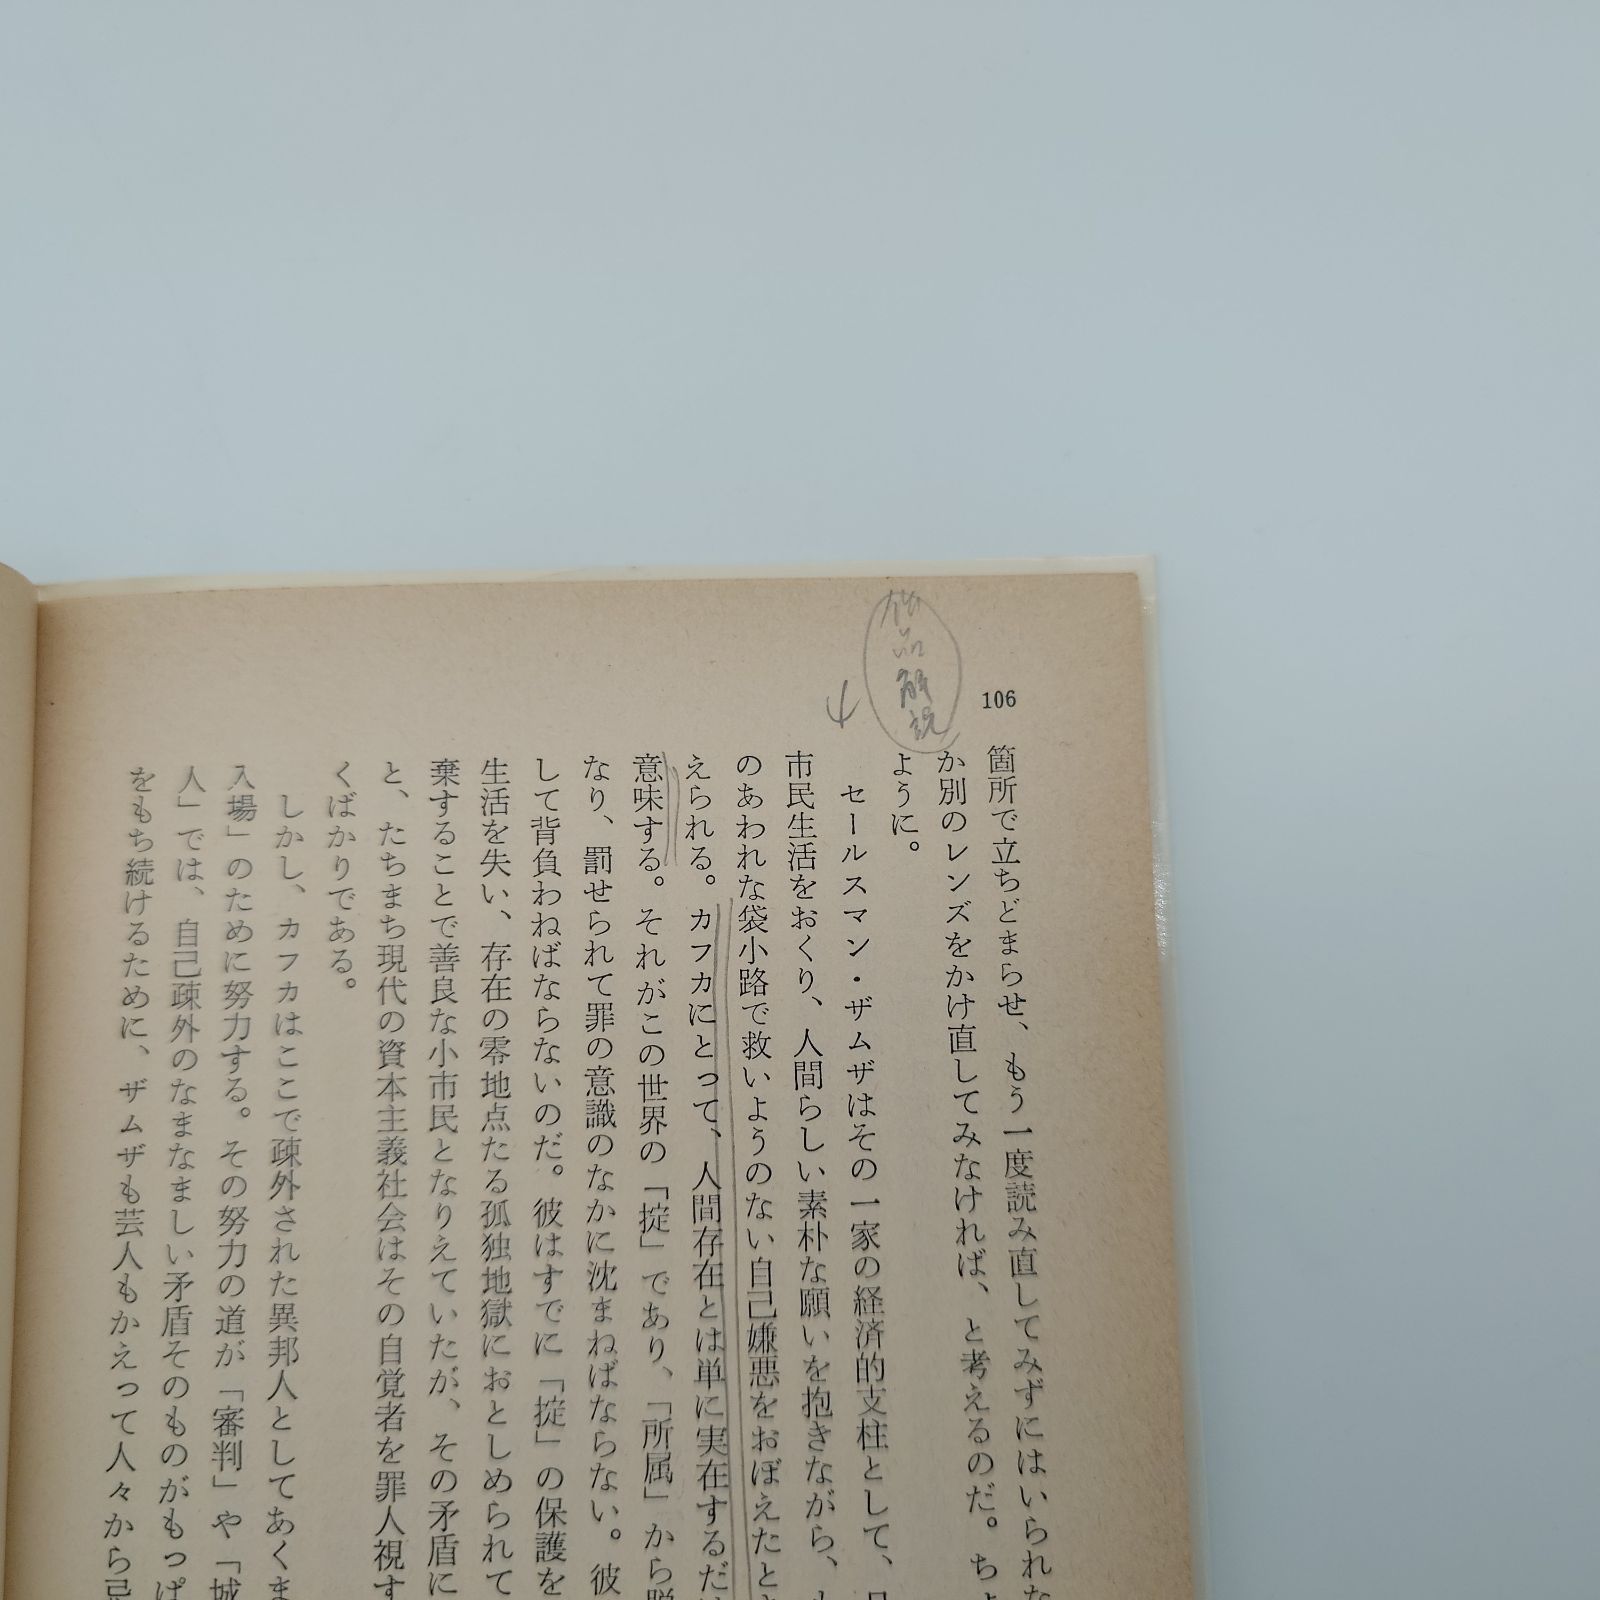 106
作品解説
箇所で立ちどまらせ、もう一度読み直してみずにはいられな
か別のレンズをかけ直してみなければ、と考えるのだ。ちょ
ように。
セールスマン・ザムザはその一家の経済的支柱として、
市民生活をおくり、人間らしい素朴な願いを抱きながら、
のあわれな袋小路で救いようのない自己嫌悪をおぼえたと
えられる。カフカにとって、人間存在とは単に実在するだけ
意味する。それがこの世界の「掟」であり、「所属」から脱
なり、罰せられて罪の意識のなかに沈まねばならない。彼
して背負わねばならないのだ。彼はすでに「掟」の保護を
生活を失い、存在の零地点たる孤独地獄におとしめられて
棄することで善良な小市民となりえていたが、その矛盾に
と、たちまち現代の資本主義社会はその自覚者を罪人視す
くばかりである。
しかし、カフカはここで疎外された異邦人としてあくま
入場」のために努力する。その努力の道が「審判」や「城
人」では、自己疎外のなまなましい矛盾そのものがもっぱ
をもち続けるために、ザムザも芸人もかえって人々から忌